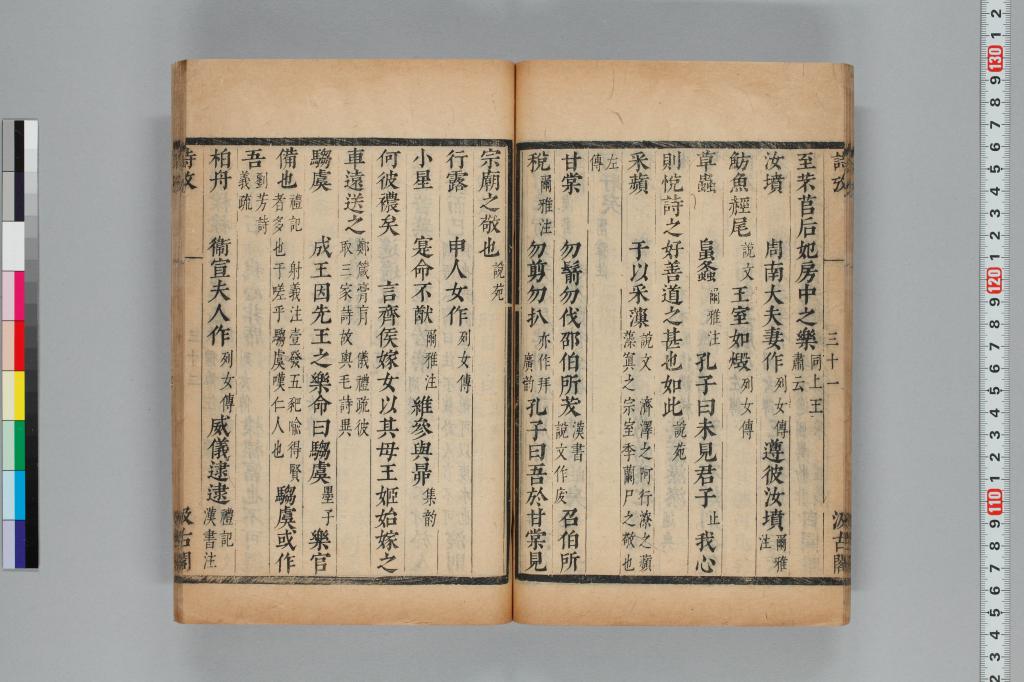 詩攷
三十一
汲古閣
至芣苢后妃房中之樂同上王肅云
汝墳 周南大夫妻作列女傳 遵彼汝墳爾雅注
魴魚赬尾說文 王室如燬列女傳
草蟲 皇螽爾雅注 孔子曰未見君子止我心
則悅詩之好善道之甚也如此說苑
采蘋 于以采薻說文 濟澤之阿行潦之蘋藻寘之宗室季蘭尸之敬也
左傳
甘棠 勿鬋勿伐邵伯所茇漢書說文作废 召伯所
稅爾雅注 勿剪勿扒亦作拜廣韵 孔子曰吾於甘棠見
宗廟之敬也說苑
行露 申人女作列女傳
小星 寔命不猷爾雅注 維參與昴集韵
何彼襛矣 言齊侯嫁女以其母王姬始嫁之
車遠送之鄭箴膏肓 儀禮疏彼取三家詩故與毛詩異
騶虞 成王因先王之樂命曰騶虞墨子 樂官
備也禮記 射義注壹發五豝喻得賢者多也于嗟乎騶虞嘆仁人也 騶虞或作
吾劉芳詩義疏
柏舟 衞宣夫人作列女傳 威儀逮逮禮記漢書注
詩攷
三十二
汲古閣